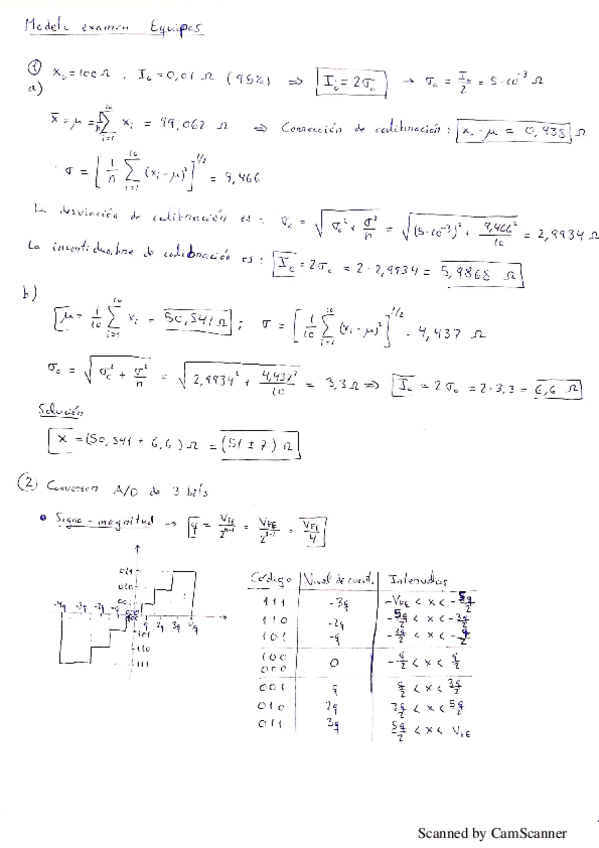 Modelo examen Equipos
① x₀ = 100 Ω , I₀ = 0,01 Ω (95%) ⇒ I₀ = 2σ₀ → σ₀ = I₀/2 = 5·10⁻³ Ω
a)
x̄ = μ = Σ xᵢ = 99,062 Ω ⇒ Corrección de calibración: x₀ - μ = 0,938 Ω
σ = [1/n Σ (xᵢ - μ)²]^1/2 = 9,466
La desviación de calibración es: σc = √(σ₀² + σ²/n) = √((5·10⁻³)² + 9,466²/10) = 2,9934 Ω
La incertidumbre de calibración es: Ic = 2σc = 2 · 2,9934 = 5,9868 Ω
b)
μ = 1/10 Σ xᵢ = 50,541 Ω ; σ = [1/10 Σ (xᵢ - μ)²]^1/2 = 4,437 Ω
σ₀ = √(σc² + σ²/n) = √(2,9934² + 4,437²/10) = 3,3 Ω ⇒ I₀ = 2σ₀ = 2·3,3 = 6,6 Ω
Solución
x = (50,541 ± 6,6) Ω = (51 ± 7) Ω
② Conversor A/D de 3 bits
• Signo-magnitud → q = V_FE/2ⁿ⁻¹ = V_FE/2³⁻¹ = V_FE/4
011
010
001
-4q -3q -2q -q
q 2q 3q 4q
101
110
111
Código | Nivel de cuant. | Intervalos
111 | -3q | -V_FE < x < -5q/2
110 | -2q | -5q/2 < x < -3q/2
101 | -q | -3q/2 < x < -q/2
100
000 | 0 | -q/2 < x < q/2
001 | q | q/2 < x < 3q/2
010 | 2q | 3q/2 < x < 5q/2
011 | 3q | 5q/2 < x < V_FE
Scanned by CamScanner